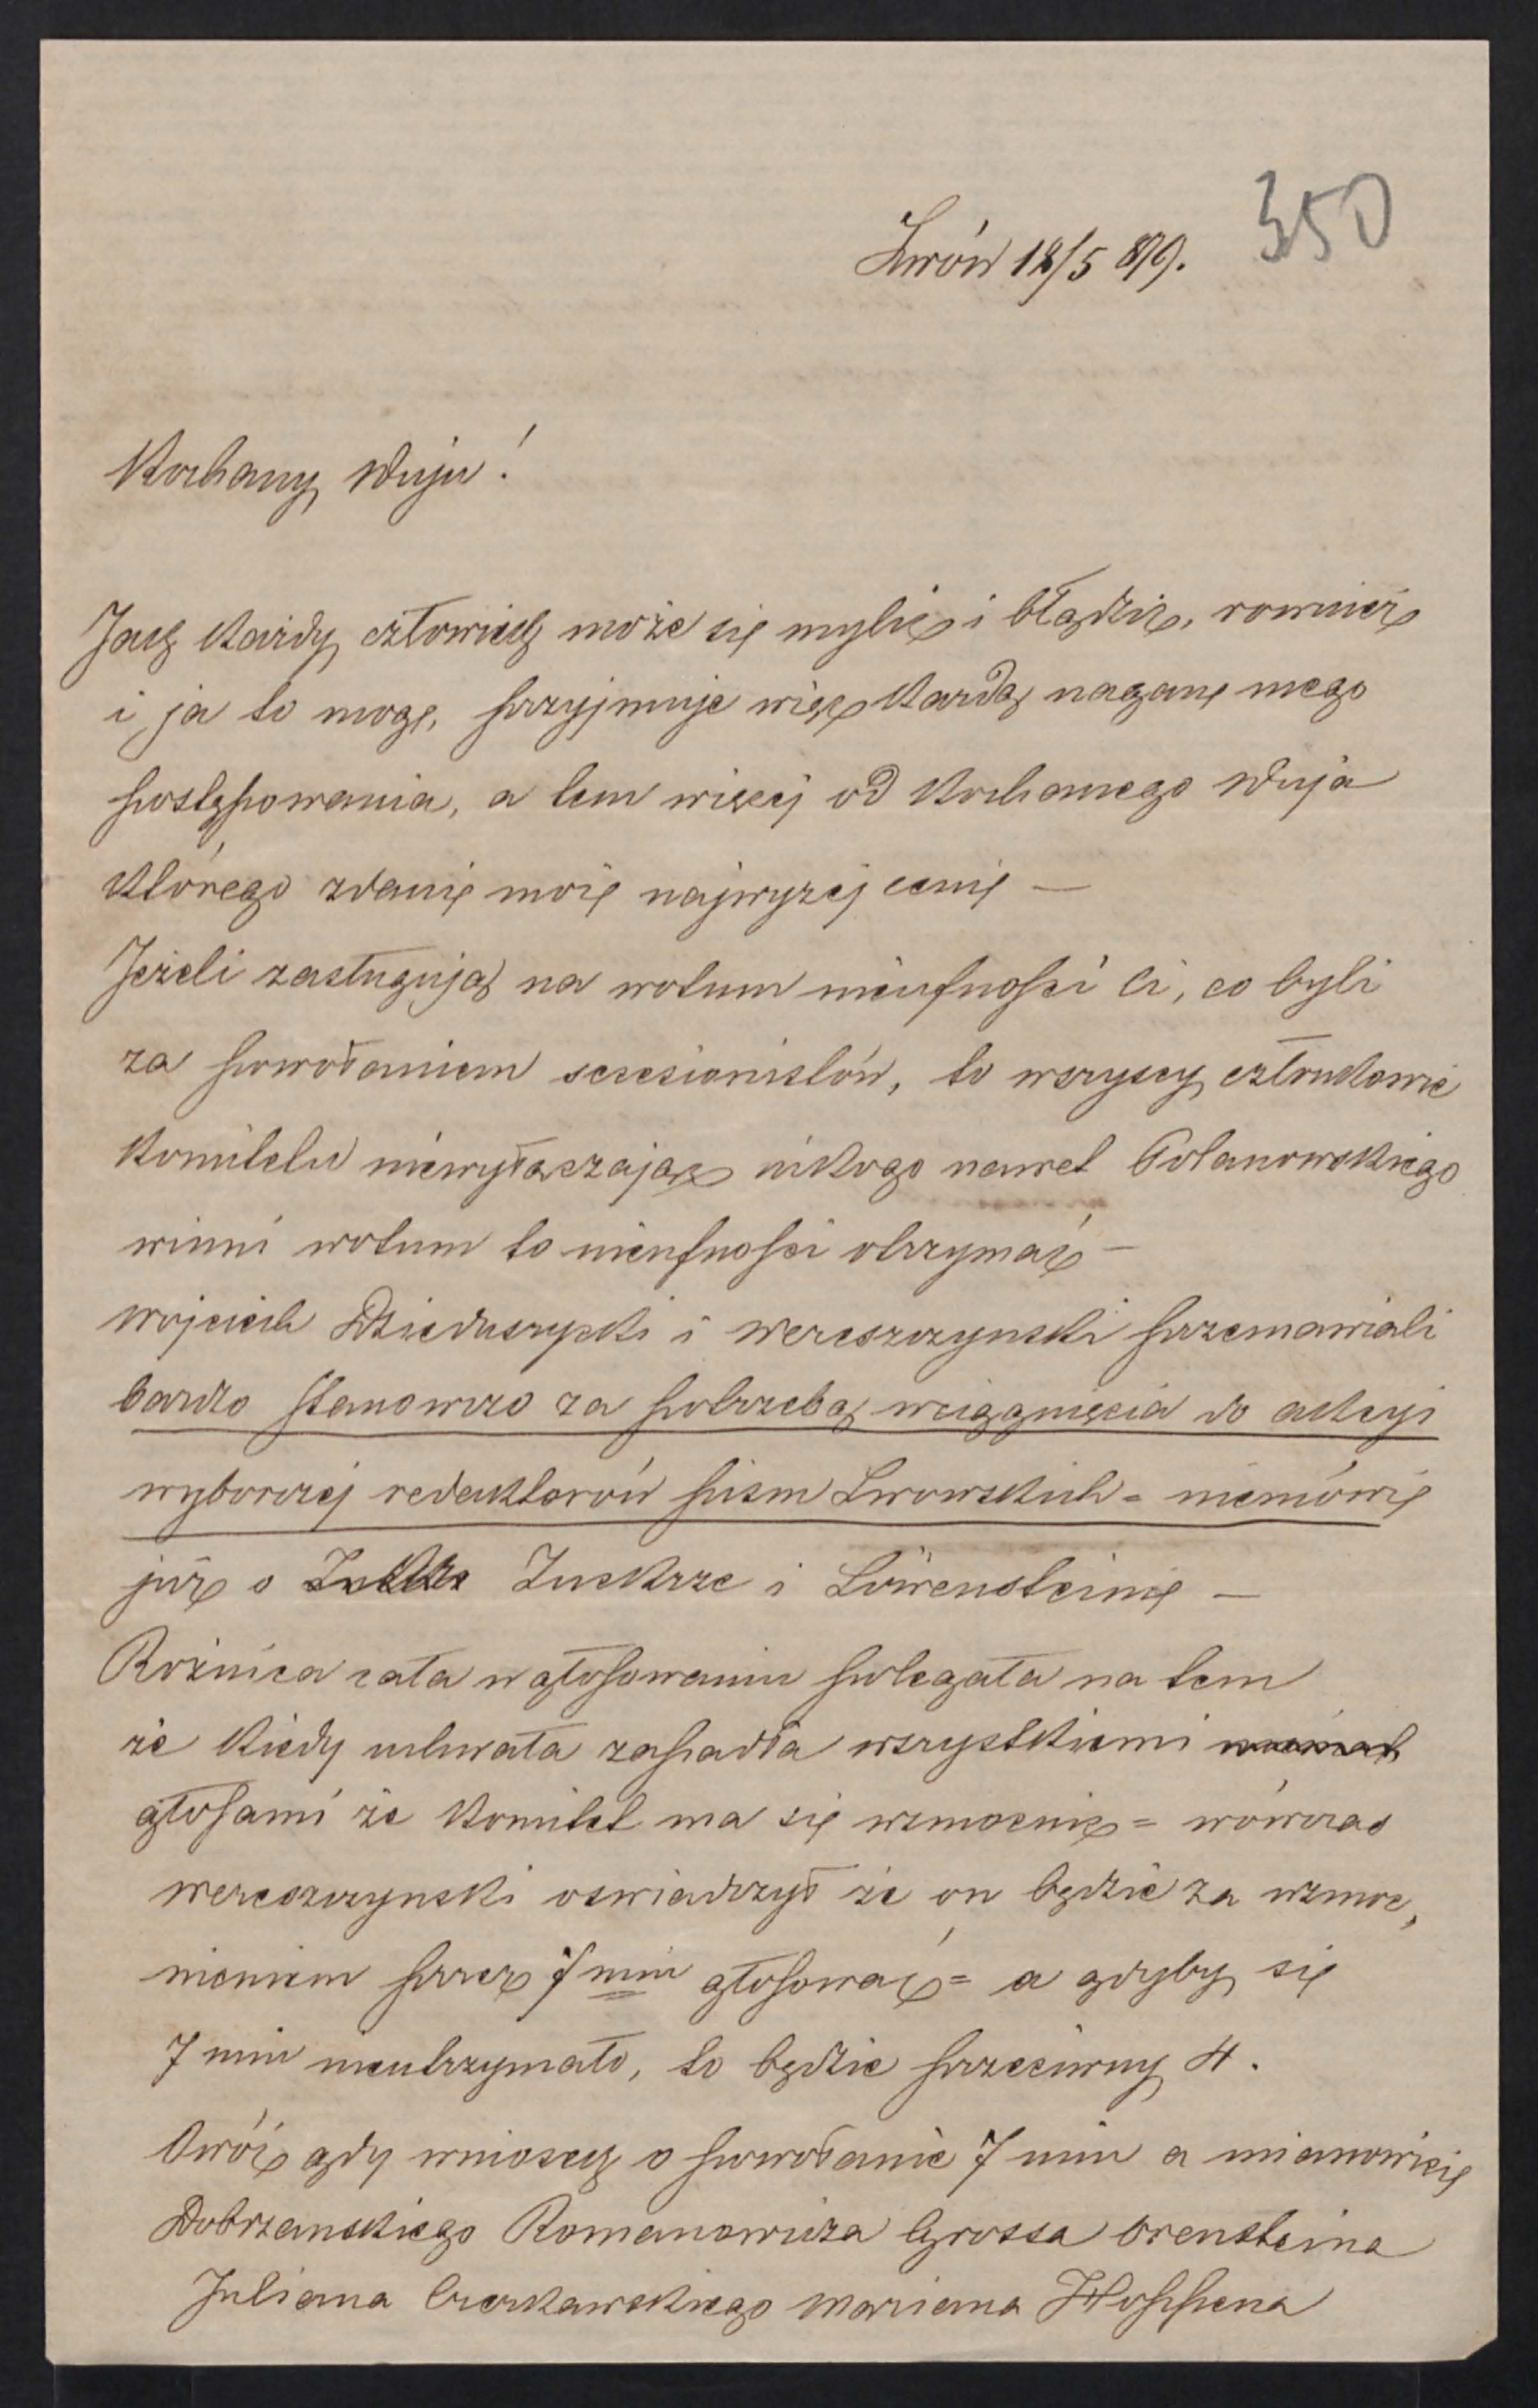 350
Lwów 18/5 879.
Kochany Wuju!
Jak każdy człowiek może się mylić i błądzić, rownież
i ja to mogę, przyjmuje więc każdą naganę mego
postępowania, a tem więcej od Kochanego Wuja
którego zdanię moię najwyzej cenię —
Jeżeli zasługują na wotum nieufności ci, co byli
za powołaniem secesionistów, to wszyscy członkowie
Komitetu niewyłączając nikogo nawet Golanowskiego
winni wotum to nieufności otrzymać —
Wojciech Dzieduszycki i Wereszczynski przemawiali
bardzo stanowczo za potrzebą wciągnięcia do akcyi
wyborczej redaktorów pism Lwowskich = niemówię
już o Zuckrze i Löwensteinię —
Roźnica cała w głosowaniu polegała na tem
że kiedy uchwała zapadła wszystkiemi
głosami że Komitet ma się wzmocnić = wówczas
Wereszczynski oswiadczył że on będzie za wzmoc„
nieniem przez 7 miu głosować = a gdyby się
7 miu nieutrzymało, to będzie przeciwny 4.
Owóż gdy wniosek o powołanie 7 miu a mianowicię
Dobrzanskiego Romanowicza Grossa Orensteina
Juliana Czerkawskiego Mariana Hoppena